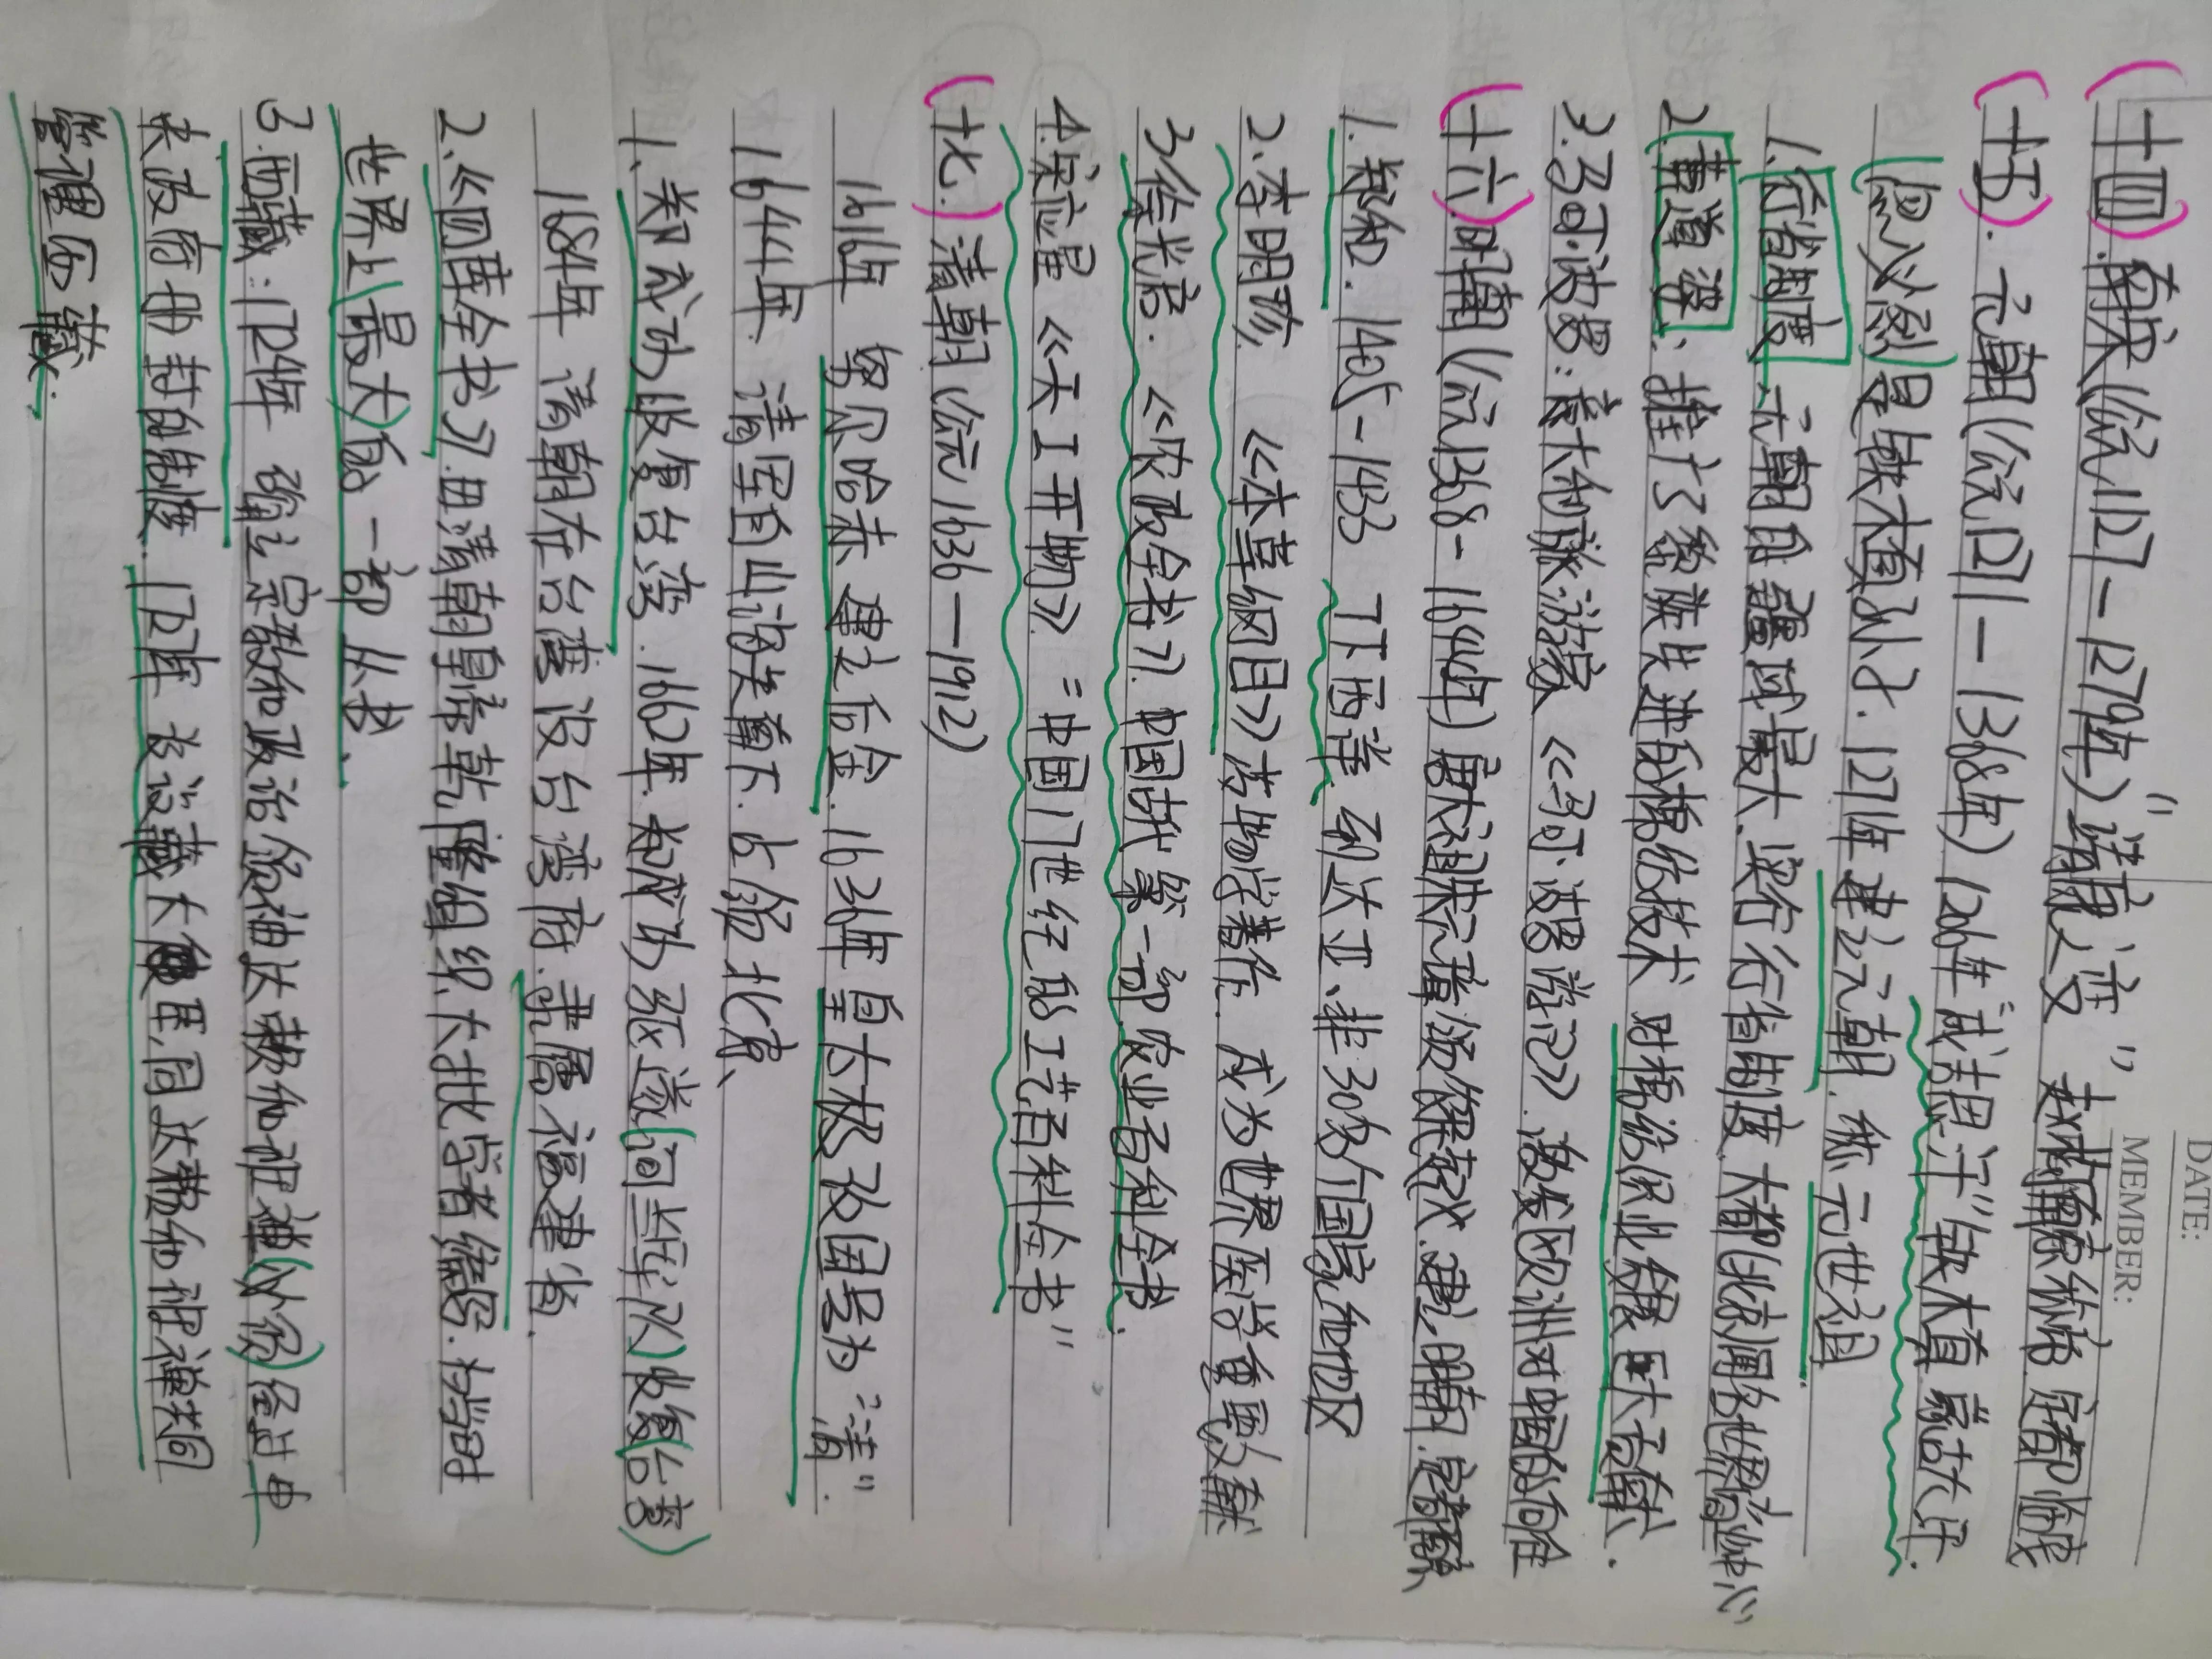 DATE:
MEMBER:
(十四).南宋(公元1127-1279年)"靖康之变" 赵构称帝.定都临安
(十五).元朝(公元1271-1368年)1206年 成吉思汗"铁木真 蒙古大汗.
(忽必烈)是铁木真孙子.1271年 建立元朝.称.元世祖
1.行省制度 元朝的疆域最大.实行行省制度.大都(北京)闻名世界商业中心
2.黄道婆:推广了黎族先进的棉纺技术 对棉纺织业发展巨大贡献.
3.马可·波罗:意大利旅游家《马可·波罗游记》.激发欧洲对中国的向往
(十六).明朝(公元1368-1644年)朱元璋 建立明朝.定都
1.郑和.1405-1433 下西洋 到达亚、非30多个国家和地区
2.李明珍.《本草纲目》药物学著作.成为世界医学重要文献
3.徐光启:《农政全书》.中国第一部农业百科全书.
4.宋应星《天工开物》="中国17世纪的工艺百科全书"
(十七.)清朝(公元1636—1912)
1616年 努尔哈赤 建立后金.1636年皇太极改国号为"清".
1644年.清军自山海关南下.占领北京、
1、郑成功收复台湾.1662年.郑成功驱逐(荷兰军队)收复(台湾)
1684年 清朝在台湾设台湾府.隶属福建省.
2.《四库全书》.由清朝皇帝乾隆组织大批学者编写.为当时
世界上(最大)的一部丛书.
3.西藏:1724年 确立宗教和政治领袖达赖和班禅(必须)经过中
央政府册封的制度.1727年 设驻藏大臣,同达赖和班禅共同
管理西藏.